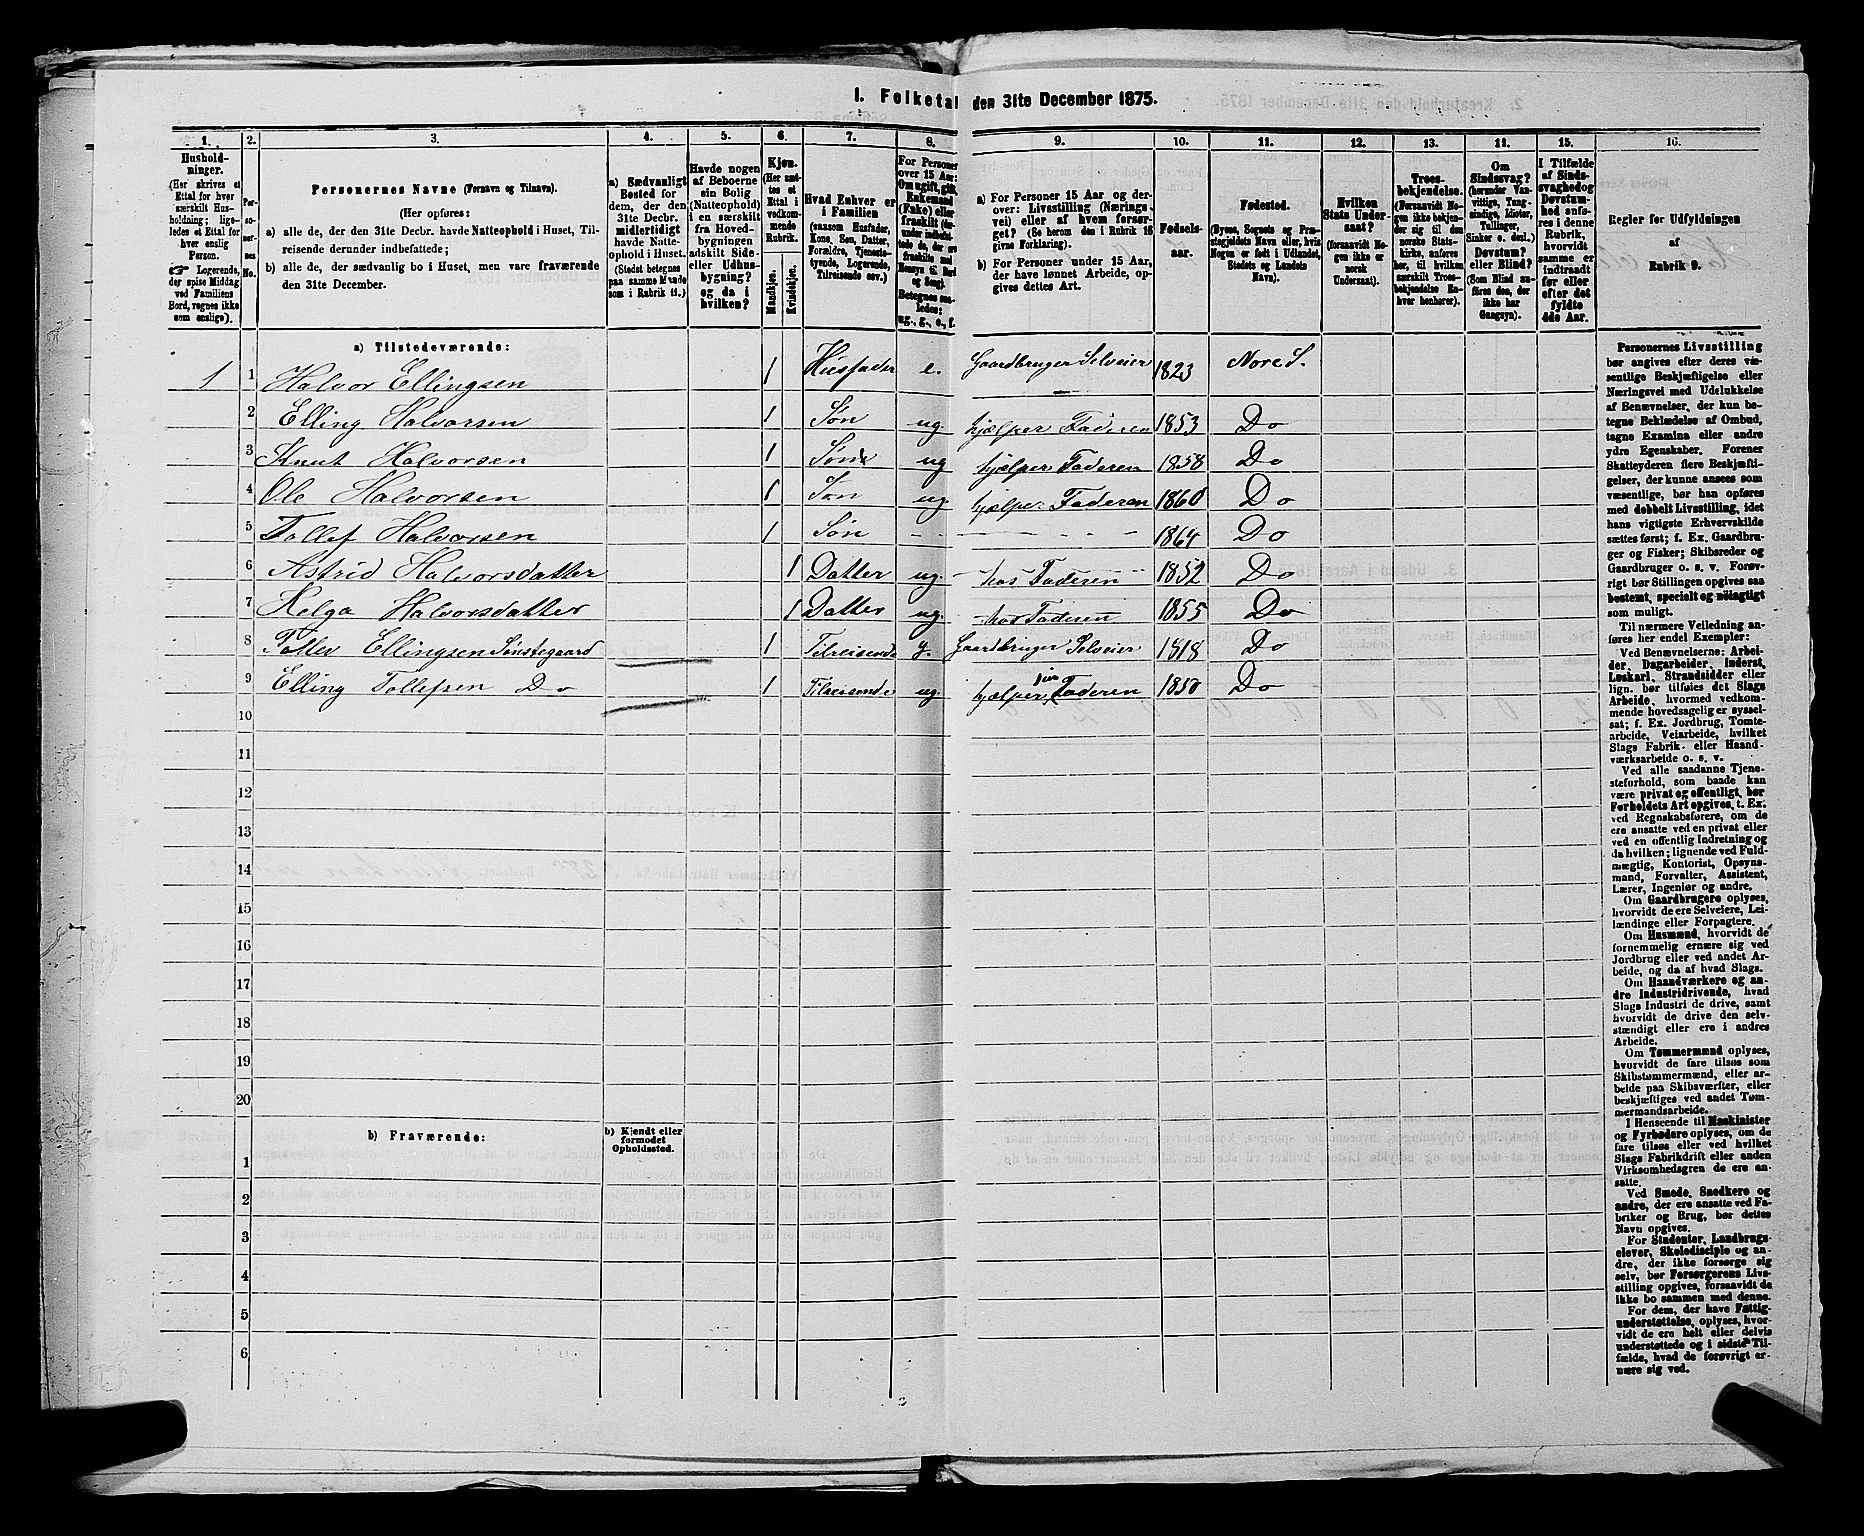 I. Folketal den 31te December 1875.
1. 2. 3. 4. 5. 6. 7. 8. 9. 10. 11. 12. 13. 14. 15. 16.
Husholdninger.
(Her skrives et
Ettal for hver
særskilt Husholdning;
ligeledes et Ettal for
hver enslig
Person.
☞ Logerende,
der spise Middag
ved Familiens
Bord, regnes ikke
som enslige).
Personernes No.
Personernes Navne (Fornavn og Tilnavn).
(Her opføres:
a) alle de, der den 31te Decbr. havde Natteophold i Huset, Tilreisende derunder indbefattede;
b) alle de, der sædvanlig bo i Huset, men vare fraværende
den 31te December.
a) Sædvanligt
Bosted for
dem, der den
31te Decbr.
midlertidigt
havde Natteophold
i Huset.
(Stedet betegnes
paa samme Maade
som i Rubrik 11.)
Havde nogen
af Beboerne
sin Bolig
(Natteophold)
i en særskilt
fra Hovedbygningen
adskilt Side-
eller Udhusbygning?
og da i
hvilken?
Kjøn.
(Her sættes et
Ettal i
vedkommende
Rubrik.
Mandkjøn.
Kvindekjøn.
Hvad Enhver er
i Familien
(saasom Husfader,
Kone, Søn, Datter,
Forældre, Tjenestetyende,
Logerende,
Tilreisende osv.)
For Personer
over 15 Aar:
Om ugift, gift,
Enkemand
(Enke) eller
fraskilt
Betegnes saaledes:
ug., g., e., f.
a) For Personer 15 Aar og derover:
Livsstilling (Næringsvei)
eller af hvem forsørget?
(Se herom den i Rubrik 16
givne Forklaring).
b) For Personer under 15 Aar,
der have lønnet Arbeide, opgives
dettes Art.
Fødselsaar.
Fødested.
(Byens, Sognets og Præstegjeldets
Navn eller, hvis
Nogen er født i Udlandet,
Stedets og Landets
Navn).
Hvilken
Stats Undersaat?
(forsaavidt Nogen
ikke er
norsk
Undersaat).
Troesbekjendelse.
(Forsaavidt Nogen
ikke bekjender
sig til den
norske Statskirke,
anføres
her, til hvilken
særskilt Troesbekjendelse
Enhver
henhører).
Om
Sindssvag?
(herunder Vanvittige,
Tungsindige,
Idioter,
Tullinger,
Sinker o. desl.)
Døvstum?
eller Blind?
(Som Blind anføres
den, der
ikke har
Gangsyn).
I Tilfælde
af Sindssvaghed
og
Døvstumhed
anføres
i denne
Rubrik,
hvorvidt
samme er
indtraadt
før eller
efter det
fyldte
4de Aar.
Regler for Udfyldningen
af
Rubrik 9.
a) Tilstedeværende:
1 1 Halvor Ellingsen 1 Husfader e. Gaardbruger Selveier 1823 Nore S.
2 Elling Halvorsen 1 Søn ug. hjælper Faderen 1853 Do
3 Knut Halvorsen 1 Søn ug hjælper Faderen 1858 Do
4 Ole Halvorsen 1 Søn ug. hjælper Faderen 1860 Do
5 Tollef Halvorsen 1 Søn - - - - - - 1864 Do
6 Astrid Halvorsdatter 1 Datter ug. - hos Faderen 1852 Do
7 Helga Halvorsdatter 1 Datter ug. - hos Faderen 1855 Do
8 Tollef Ellingsen Sønstegaard 1 Tilreisende g. Gaardbruger Selveier 1818 Do
9 Elling Tollefsen Do 1 Tilreisende ug. hjælper sin Faderen 1850 Do
10
11
12
13
14
15
16
17
18
19
20
b) Fraværende:
b) Kjendt eller
formodet
Opholdssted.
1
2
3
4
5
6
Personernes Livsstilling
bør angives efter deres væsentlige
Beskjæftigelse eller
Næringsvei med Udelukkelse
af Benævnelser, der kun betegne
Beklædelse af Ombud,
tagne Examina eller andre
ydre Egenskaber. Forener
Skatteyderen flere Beskjæftigelser,
der kunne ansees som
væsentlige, bør han opføres
med dobbelt Livsstilling, idet
hans vigtigste Erhvervskilde
sættes først; f. Ex. Gaardbruger
og Fisker; Skibsreder og
Gaardbruger o. s. v. Forøvrigt
bør Stillingen opgives saa
bestemt, specielt og nøiagtigt
som muligt.
Til nærmere Veiledning anføres
her endel Exempler:
Ved Benævnelserne: Arbeider,
Dagarbeider, Inderst,
Løskarl, Strandsidder eller
lign. bør tilføies det Slags
Arbeide, hvormed vedkommende
hovedsagelig er sysselsat;
f. Ex. Jordbrug, Tomtearbeide,
Veiarbeide, hvilket
Slags Fabrik- eller Haandværksarbeide
o. s. v.
Ved alle saadanne Tjenesteforhold,
som baade kan
være privat og offentligt, bør
Forholdets Art opgives, t. Ex.
ved Regnskabsførere, om de
ere ansatte ved en privat eller
ved en offentlig Indretning og
da hvilken; lignende ved Fuldmægtig,
Kontorist, Opsynsmand,
Forvalter, Assistent,
Lærer, Ingeniør og andre.
Om Gaardbrugere oplyses,
hvorvidt de ere Selveiere, Leilændinge
eller Forpagtere.
Om Husmænd, hvorvidt de
fornemmelig ernære sig ved
Jordbrug eller ved andet Arbeide,
og da af hvad Slags.
Om Haandværkere og andre
Industridrivende, hvad
Slags Industri de drive, samt
hvorvidt de drive den selvstændigt
eller ere i andres
Arbeide.
Om Tømmermænd oplyses,
hvorvidt de fare tilsøs som
Skibstømmermænd, eller arbeide
paa Skibsværfter, eller
beskjæftiges ved andet Tømmermandsarbeide.
I Henseende til Maskinister
og Fyrbødere oplyses, om de
fare tilsøs eller ved hvilket
Slags Fabrikdrift eller anden
Virksomhedsgren de ere ansatte.
Ved Smede, Snedkere og
andre, der ere ansatte ved Fabriker
og Brug, bør dettes
Navn opgives.
For Studenter, Landbrugselever,
Skoledisciple og andre,
der ikke forsørge sig
selv, bør Forsørgerens Livsstilling
opgives, forsaavidt de
ikke bo sammen med denne.
For dem, der have Fattigunderstøttelse,
oplyses, hvorvidt
de ere helt eller delvis
understøttede og i sidste Tilfælde,
hvad de forøvrigt ernære
sig ved.